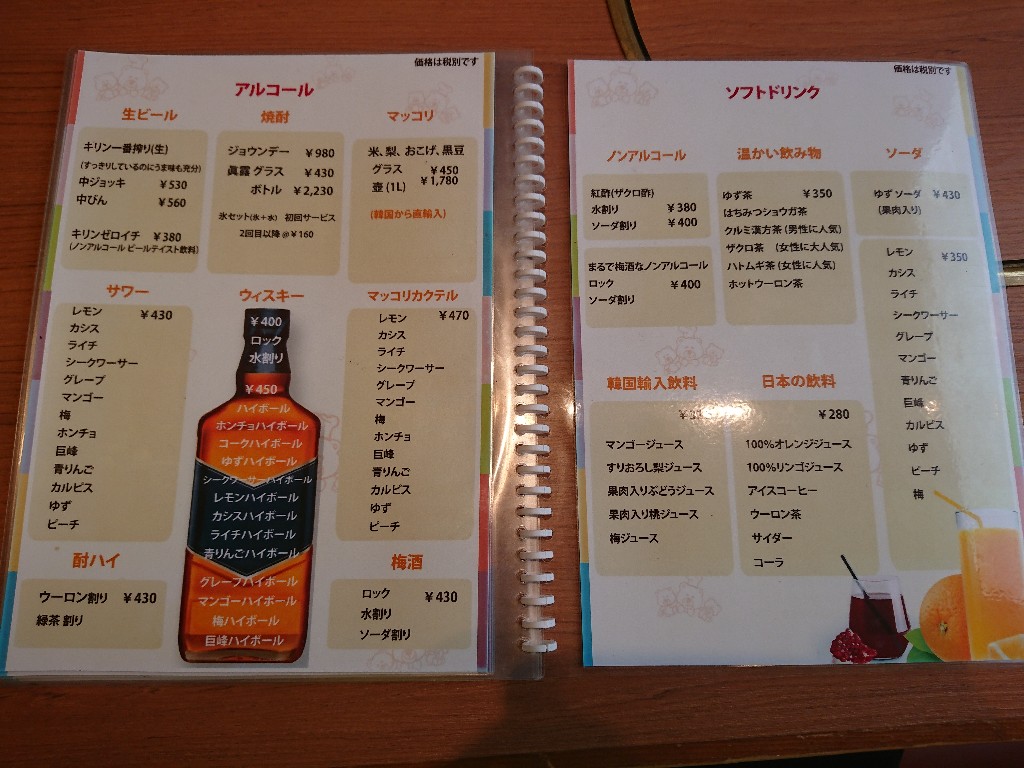 価格は税別です
アルコール
生ビール
キリン一番搾り(生)
(すっきりしているのにうま味も充分)
中ジョッキ ￥530
中びん ￥560
キリンゼロイチ ￥380
(ノンアルコール ビールテイスト飲料)
焼酎
ジョウンデー ￥980
眞露 グラス ￥430
ボトル ￥2,230
氷セット(氷+水) 初回サービス
2回目以降@￥160
マッコリ
米、梨、おこげ、黒豆
グラス ￥450
壺 (1L) ￥1,780
(韓国から直輸入)
サワー
レモン ￥430
カシス
ライチ
シークワーサー
グレープ
マンゴー
梅
ホンチョ
巨峰
青りんご
カルピス
ゆず
ピーチ
ウィスキー
￥400
ロック
水割り
￥450
ハイボール
ホンチョハイボール
コークハイボール
ゆずハイボール
シークワーサーハイボール
レモンハイボール
カシスハイボール
ライチハイボール
青りんごハイボール
グレープハイボール
マンゴーハイボール
梅ハイボール
巨峰ハイボール
マッコリカクテル
レモン ￥470
カシス
ライチ
シークワーサー
グレープ
マンゴー
梅
ホンチョ
巨峰
青りんご
カルピス
ゆず
ピーチ
酎ハイ
ウーロン割り ￥430
緑茶 割り
梅酒
ロック ￥430
水割り
ソーダ割り
価格は税別です
ソフトドリンク
ノンアルコール
紅酢(ザクロ酢)
水割り ￥380
ソーダ割り ￥400
まるで梅酒なノンアルコール
ロック ￥400
ソーダ割り
温かい飲み物
ゆず茶 ￥350
はちみつショウガ茶
クルミ漢方茶 (男性に人気)
ザクロ茶 (女性に大人気)
ハトムギ茶 (女性に人気)
ホットウーロン茶
ソーダ
ゆず ソーダ ￥430
(果肉入り)
レモン ￥350
カシス
ライチ
シークワーサー
グレープ
マンゴー
青りんご
巨峰
カルピス
ゆず
ピーチ
梅
韓国輸入飲料
マンゴージュース
すりおろし梨ジュース
果肉入りぶどうジュース
果肉入り桃ジュース
梅ジュース
日本の飲料
￥280
100%オレンジジュース
100%リンゴジュース
アイスコーヒー
ウーロン茶
サイダー
コーラ